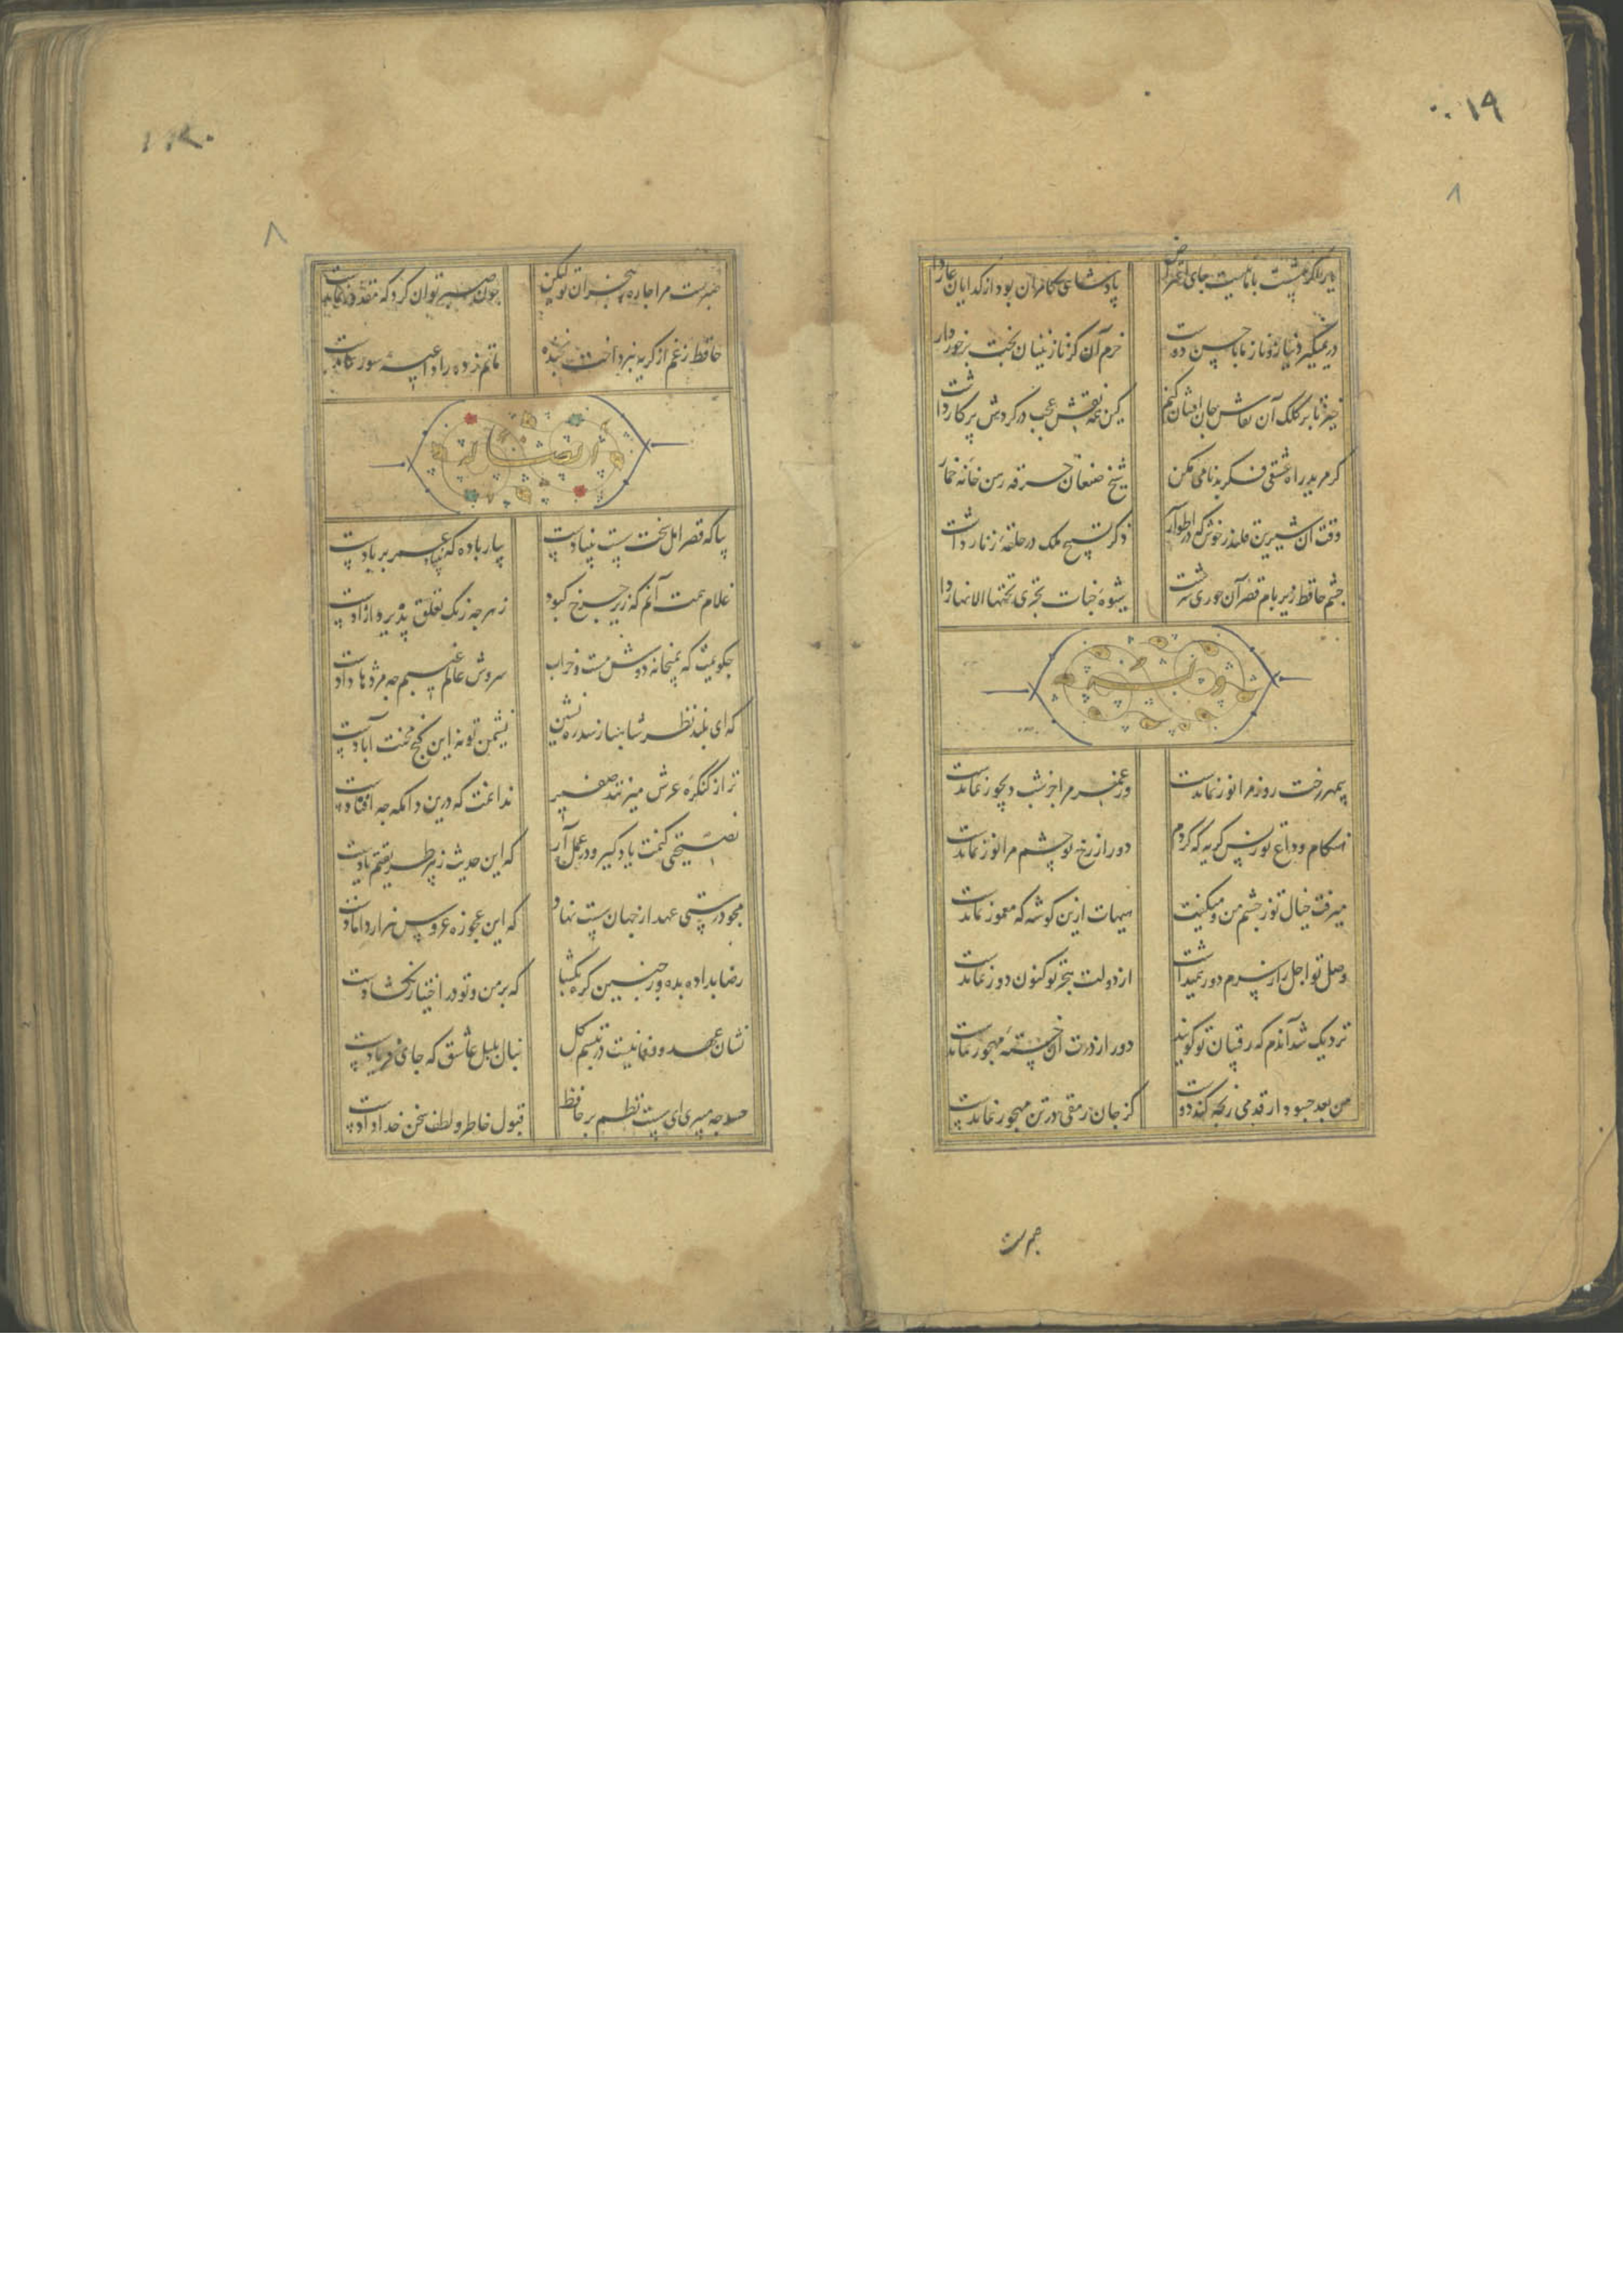 ۱۹
۸
یار اگر ننشست با ما نیست جای اعتراض پادشاهی کامران بود از گدایان عار داشت
در نمیگیرد نیاز و ناز ما با حسن دوست خرم آن کز نازنینان بخت برخوردار داشت
خیز تا بر کلک آن نقاش جان افشان کنیم کین همه نقش عجب در گردش پرگار داشت
گر مرید راه عشقی فکر بدنامی مکن شیخ صنعان خرقه رهن خانه خمار داشت
وقت آن شیرین قلندر خوش که در اطوار سیر ذکر تسبیح ملک در حلقه زنار داشت
چشم حافظ زیر بام قصر آن حوری سرشت شیوه جنات تجری تحتها الانهار داشت
بی مهر رخت روز مرا نور نماندست وز عمر مرا جز شب دیجور نماندست
هنگام وداع تو ز بس گریه که کردم دور از رخ تو چشم مرا نور نماندست
میرفت خیال تو ز چشم من و میگفت هیهات ازین گوشه که معمور نماندست
وصل تو اجل را ز سرم دور همیداشت از دولت هجر تو کنون دور نماندست
نزدیک شد آندم که رقیبان تو گویند دور از درت آن خسته مهجور نماندست
من بعد چه سود ار قدمی رنجه کند دوست کز جان رمقی در تن مهجور نماندست
۸
صبرست مرا چاره هجران تو لیکن چون صبر توان کرد که مقدور نماندست
حافظ ز غم از گریه نپرداخت بخنده ماتم زده را داعیه سور نماندست
بیا که قصر امل سخت سست بنیادست بیار باده که بنیاد عمر بر بادست
غلام همت آنم که زیر چرخ کبود ز هر چه رنگ تعلق پذیرد آزادست
چگویمت که بمیخانه دوش مست و خراب سروش عالم غیبم چه مژدها دادست
که ای بلند نظر شاهباز سدره نشین نشیمن تو نه این کنج محنت آبادست
ترا ز کنگره عرش میزنند صفیر ندانمت که درین دامگه چه افتادست
نصیحتی کنمت یاد گیر و در عمل آر که این حدیث ز پیر طریقتم یادست
مجو درستی عهد از جهان سست نهاد که این عجوزه عروس هزار دامادست
رضا بداده بده وز جبین گره بگشا که بر من و تو در اختیار نگشادست
نشان عهد و وفا نیست در تبسم گل بنال بلبل عاشق که جای فریادست
حسد چه میبری ای سست نظم بر حافظ قبول خاطر و لطف سخن خدادادست